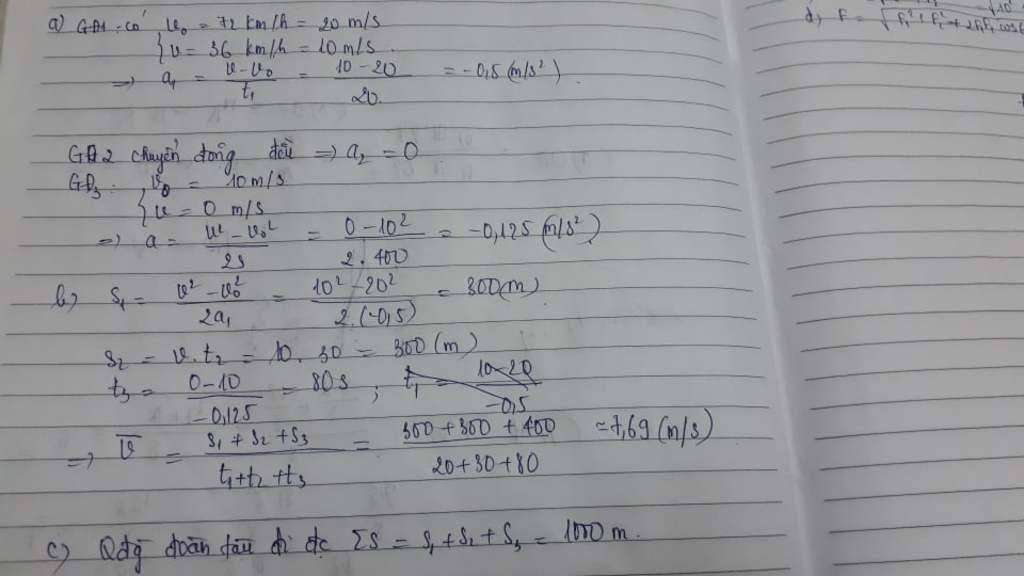 a) GĐ1: có v₀ = 72 km/h = 20 m/s
{ v = 36 km/h = 10 m/s.
=> a₁ = (v - v₀)/t₁ = (10 - 20)/20 = -0,5 (m/s²).
GĐ2 chuyển động đều => a₂ = 0
GĐ3: v₀ = 10 m/s
{ v = 0 m/s
=> a = (v² - v₀²)/2s = (0 - 10²)/(2.400) = -0,125 (m/s²)
b) s₁ = (v² - v₀²)/2a₁ = (10² - 20²)/(2.(-0,5)) = 300 (m)
s₂ = v.t₂ = 10.30 = 300 (m)
t₃ = (0 - 10)/(-0,125) = 80s ; t₁ = (10 - 20)/(-0,5)
=> v̄ = (s₁ + s₂ + s₃)/(t₁ + t₂ + t₃) = (300 + 300 + 400)/(20 + 30 + 80) = 7,69 (m/s)
c) Qđg đoàn tàu đi đc Σs = s₁ + s₂ + s₃ = 1000 m.
d, F = √(F₁² + F₂² + 2F₁F₂ cos